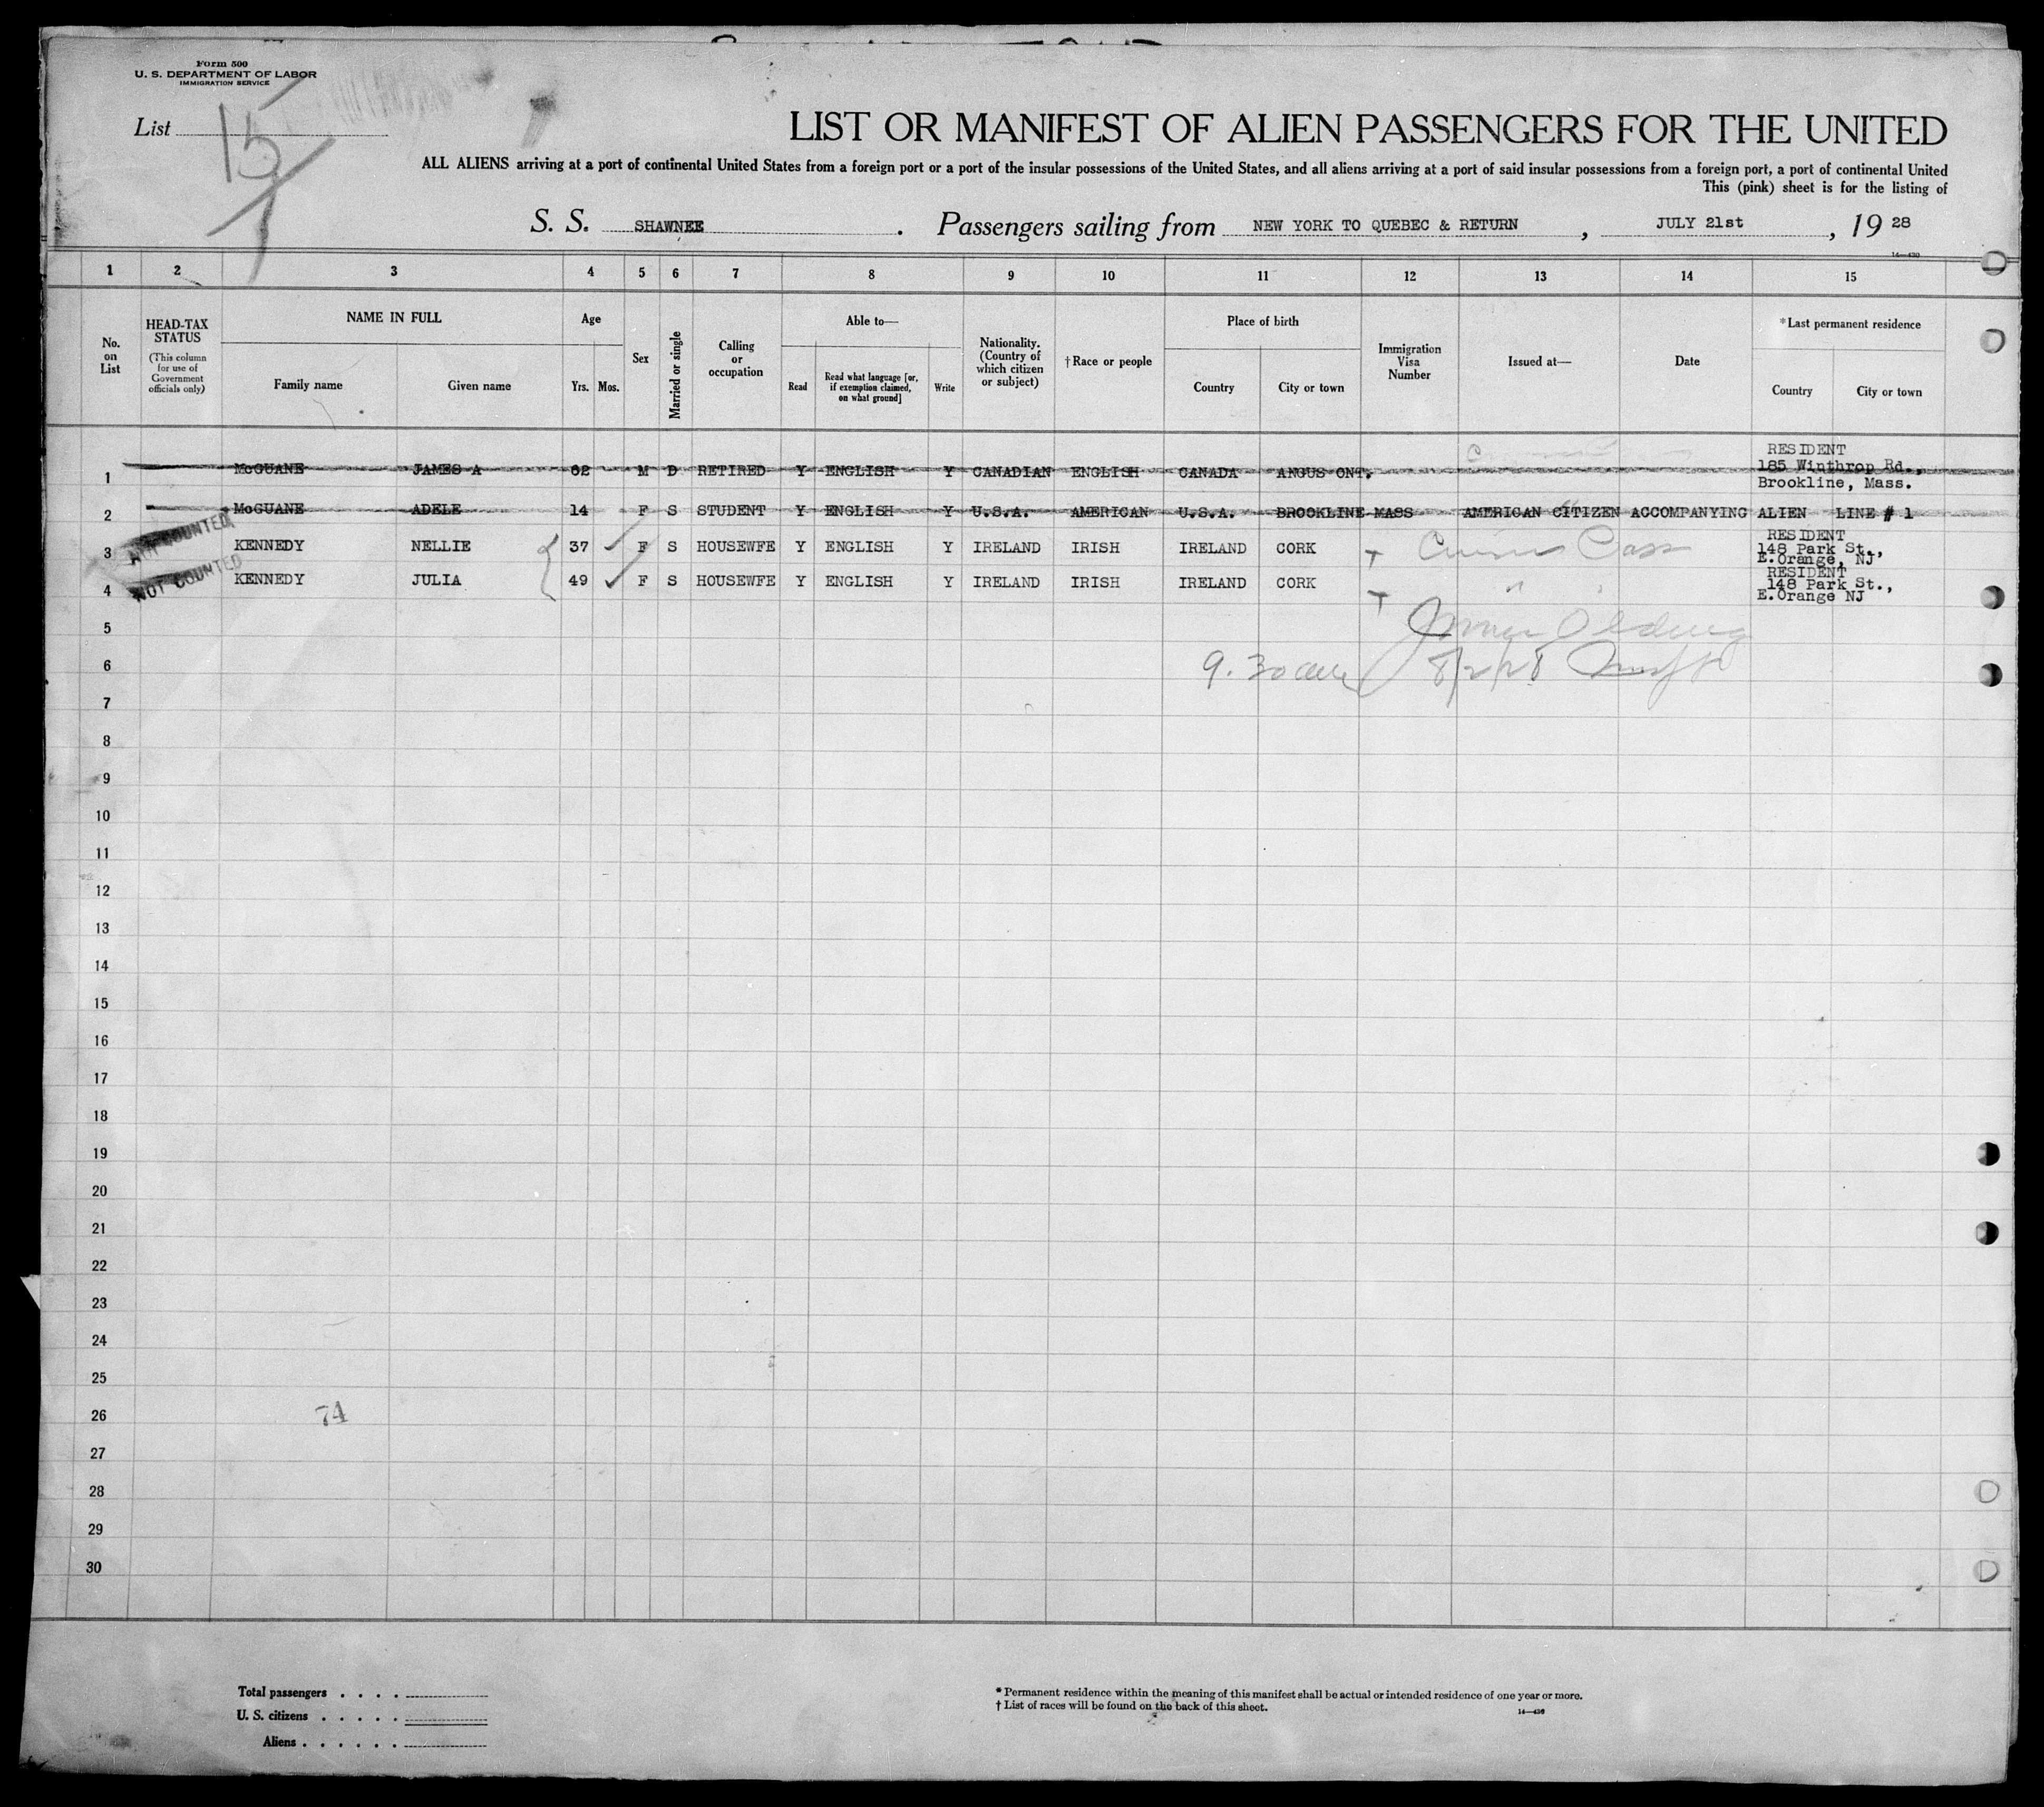 Form 500
U. S. DEPARTMENT OF LABOR
IMMIGRATION SERVICE
List 15
LIST OR MANIFEST OF ALIEN PASSENGERS FOR THE UNITED
ALL ALIENS arriving at a port of continental United States from a foreign port or a port of the insular possessions of the United States, and all aliens arriving at a port of said insular possessions from a foreign port, a port of continental United
This (pink) sheet is for the listing of
S. S. SHAWNEE. Passengers sailing from NEW YORK TO QUEBEC & RETURN, JULY 21st, 19 28
14—430
1 2 3 4 5 6 7 8 9 10 11 12 13 14 15
No. on List
HEAD-TAX STATUS
(This column for use of Government officials only)
NAME IN FULL
Family name Given name
Age
Yrs. Mos.
Sex
Married or single
Calling or occupation
Able to—
Read
Read what language [or, if exemption claimed, on what ground]
Write
Nationality. (Country of which citizen or subject)
†Race or people
Place of birth
Country City or town
Immigration Visa Number
Issued at—
Date
*Last permanent residence
Country City or town
1 McGUANE JAMES A 62 M D RETIRED Y ENGLISH Y CANADIAN ENGLISH CANADA ANGUS ONT. RESIDENT
185 Winthrop Rd.,
Brookline, Mass.
2 McGUANE ADELE 14 F S STUDENT Y ENGLISH Y U.S.A. AMERICAN U.S.A. BROOKLINE MASS AMERICAN CITIZEN ACCOMPANYING ALIEN LINE # 1
NOT COUNTED
3 KENNEDY NELLIE 37 F S HOUSEWFE Y ENGLISH Y IRELAND IRISH IRELAND CORK RESIDENT
148 Park St.,
E.Orange, NJ
NOT COUNTED
4 KENNEDY JULIA 49 F S HOUSEWFE Y ENGLISH Y IRELAND IRISH IRELAND CORK RESIDENT
148 Park St.,
E.Orange NJ
5
6 9.30 8/2/28
7
8
9
10
11
12
13
14
15
16
17
18
19
20
21
22
23
24
25
26 74
27
28
29
30
Total passengers . . . .
U. S. citizens . . . . .
Aliens . . . . . .
* Permanent residence within the meaning of this manifest shall be actual or intended residence of one year or more.
† List of races will be found on the back of this sheet.
14—430